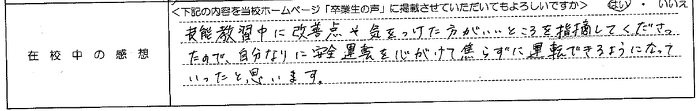 <下記の内容を当校ホームページ「卒業生の声」に掲載させていただいてもよろしいですか> はい・いいえ
在校中の感想
技能教習中に改善点や気をつけた方がいいところを指摘してくださっ
たので、自分なりに安全運転を心がけて焦らずに運転できるようになって
いったと思います。